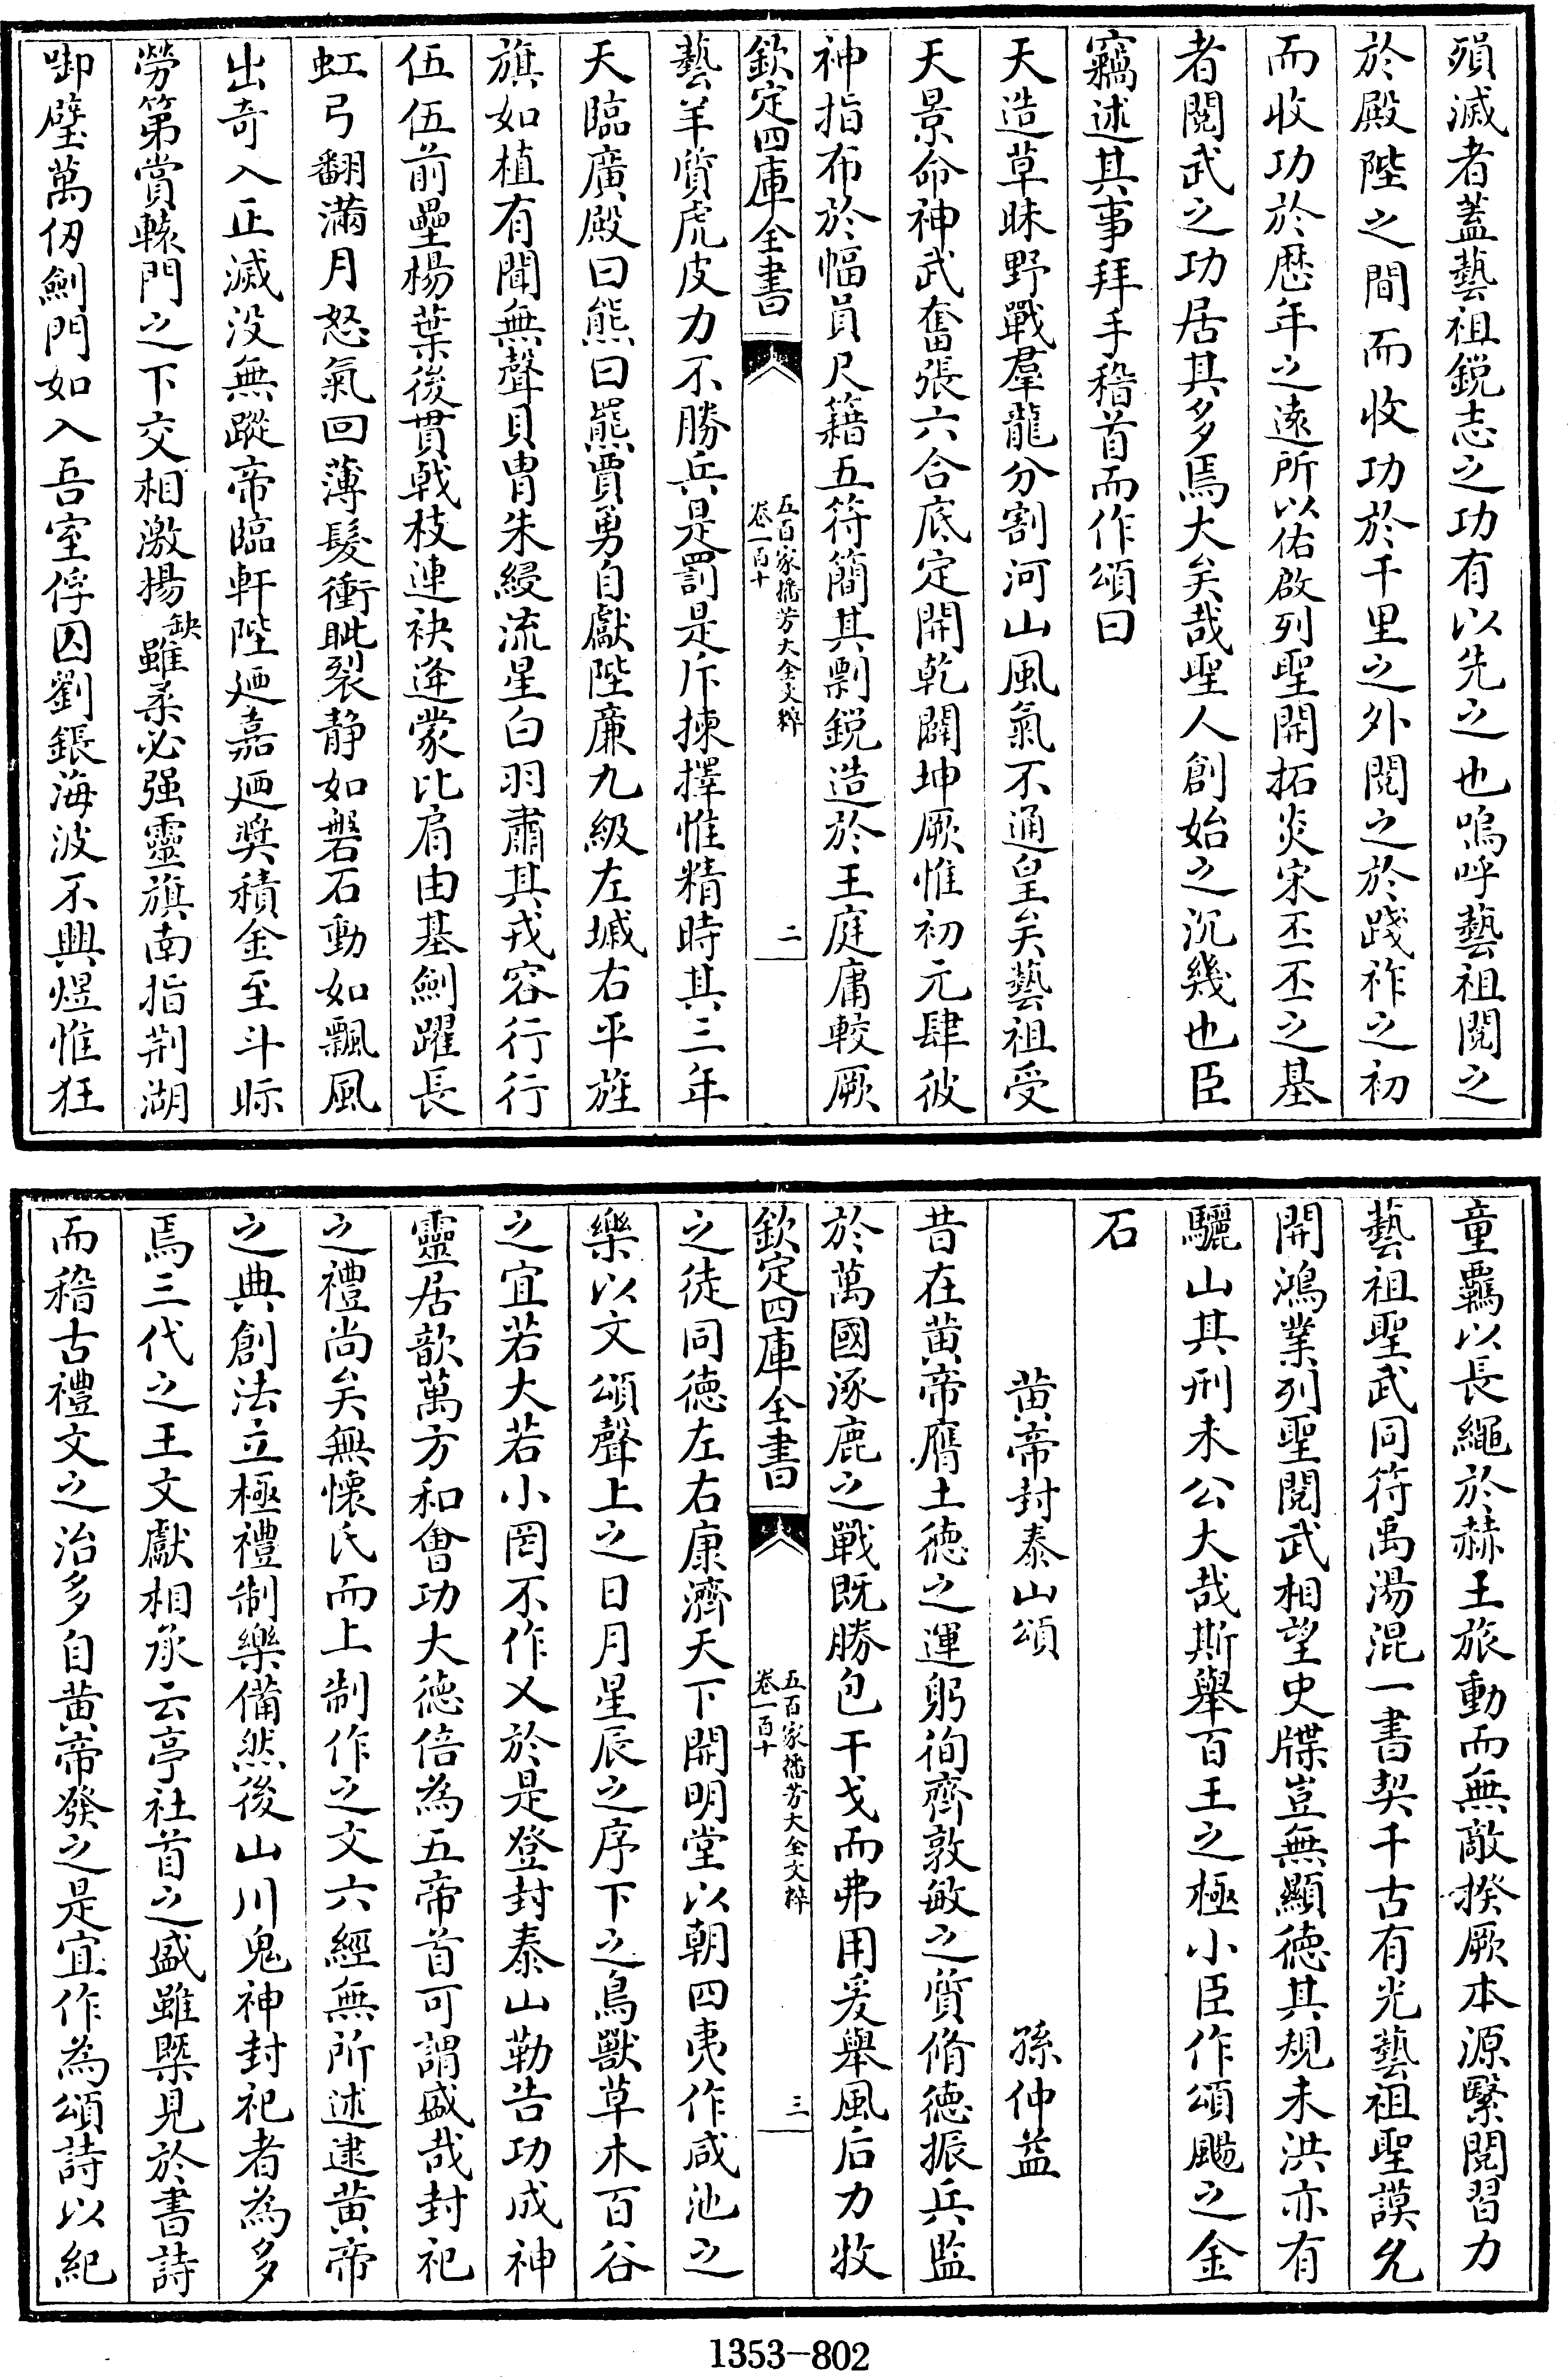 殞滅者蓋藝祖鋭志之功有以先之也嗚呼藝祖閱之
於殿陛之間而收功於千里之外閱之於踐祚之初
而收功於歴年之遠所以佑啟列聖開拓炎宋丕丕之基
者閱武之功居其多焉大矣哉聖人創始之沉幾也臣
竊述其事拜手稽首而作頌曰
天造草昧野戰羣龍分割河山風氣不通皇矣藝祖受
天景命神武奮張六合底定開乾闢坤厥惟初元肆彼
神指布於幅員尺籍五符簡其剽鋭造於王庭庸較厥
欽定四庫全書
五百家播芳大全文粹
卷一百十
二
藝羊質虎皮力不勝兵是罰是斥揀擇惟精時其三年
天臨廣殿曰熊曰羆賈勇自獻陛亷九級左墄右平旌
旗如植有聞無聲貝胄朱綅流星白羽肅其戎容行行
伍伍前壘楊葉後貫戟枝連袂逄蒙比肩由基劍躍長
虹弓翻滿月怒氣回薄髮衝眦裂静如磐石動如飄風
出奇入正滅没無蹤帝臨軒陛廼嘉廼奬積金至斗眎
勞第賞轅門之下交相激揚缺雖柔必强靈旗南指荆湖
啣璧萬仭劍門如入吾室俘囚劉鋹海波不興煜惟狂
童羈以長繩於赫王旅動而無敵揆厥本源繄閱習力
藝祖聖武同符禹湯混一書契千古有光藝祖聖謨允
開鴻業列聖閱武相望史牒豈無顯徳其規未洪亦有
驪山其刑未公大哉斯舉百王之極小臣作頌颺之金
石
黄帝封泰山頌
孫仲益
昔在黄帝膺土徳之運躬徇齊敦敏之質脩徳振兵監
於萬國涿鹿之戰既勝包干戈而弗用爰舉風后力牧
欽定四庫全書
五百家播芳大全文粹
卷一百十
三
之徒同徳左右康濟天下開明堂以朝四夷作咸池之
樂以文頌聲上之日月星辰之序下之鳥獸草木百谷
之宜若大若小罔不作乂於是登封泰山勒告功成神
靈居歆萬方和㑹功大徳倍為五帝首可謂盛哉封祀
之禮尚矣無懷氏而上制作之文六經無所述逮黄帝
之典創法立極禮制樂備然後山川鬼神封祀者為多
焉三代之王文獻相承云亭社首之盛雖槩見於書詩
而稽古禮文之治多自黄帝發之是宜作為頌詩以紀
1353-802